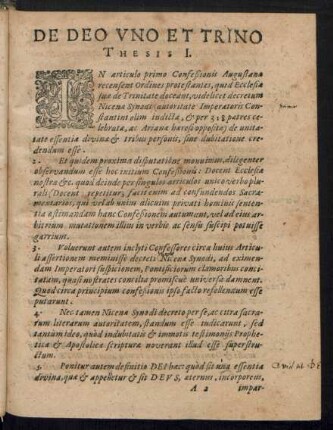 DE DEO VNO ET TRINO
THESIS I.
IN articulo primo Confeßionis Augustanæ
recensent Ordines protestantes, quid Ecclesiæ
suæ de Trinitate doceant, videlicet decretum
Nicenæ Synodi, autoritate Imperatoris Con-
stantini olim indictæ, & per 318 patres ce-
lebratæ, ac Arianæ hæresi oppositæ, de unita-
tate essentiæ divinæ & tribus personis, sine dubitatione cre-
dendum esse.
2. Et quidem proxima disputatione monuimus, diligenter
observandum esse hoc initium Confeßionis: Docent Ecclesiæ
nostræ &c. quod deinde per singulos articulos unico verbo plu-
rali (Docent) repetitur, faciendum ad confundendos Sacra-
mentarios, qui vel ad unius alicuius privati hominis senten-
tiæ estimandam hanc Confeßionem autumant, vel ad eius ar-
bitrium, mutationem illius in verbis ac sensu suscipi potuisse
garriunt.
3. Voluerunt autem inclyti Confessores circa huius Articu-
li assertionem meminisse decreti Nicenæ Synodi, ad eximen-
dam Imperatori suspicionem, Pontificiorum clamoribus conci-
tatam, quasi nostrates concilia promiscuè universa damnent.
Quod circa principium confeßionis ipso facto refellendum esse
putarunt.
4. Nec tamen Nicenæ Synodi decreto per se, ac citra sacra-
rum literarum autoritatem, standum esse indicarunt, sed
tantum ideo, quod indubitatis & immotis testimonijs Prophe-
ticæ & Apostolicæ scripturæ noverant illud esse superstru-
ctum.
5. Ponitur autem definitio DEI hæc: quòd sit una essentia
divina, quæ & appelletur & sit DEVS, æternus, incorporeus,
A 2 impar-